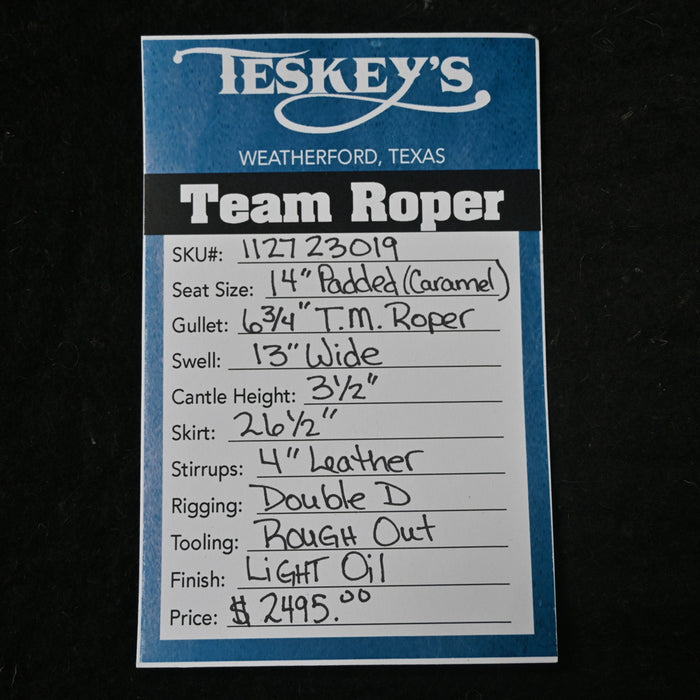 TESKEY'S
WEATHERFORD, TEXAS
Team Roper
SKU#: 112723019
Seat Size: 14" Padded (Caramel)
Gullet: 6 3/4" T.M. Roper
Swell: 13" Wide
Cantle Height: 3 1/2"
Skirt: 26 1/2"
Stirrups: 4" Leather
Rigging: Double D
Tooling: ROUGH Out
Finish: LIGHT Oil
Price: $ 2495.00